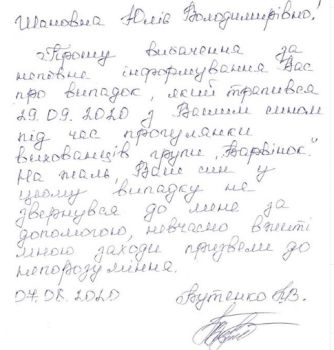 Шановна Юлія Володимирівно!
Прошу вибачення за
неповне інформування Вас
про випадок, який трапився
29.09.2020 з Вашим сином
під час прогулянки
вихованців групи „Барвінок".
На жаль Ваш син у
цьому випадку не
звернувся до мене за
допомогою, невчасно вжиті
мною заходи призвели до
непорозуміння.
04.08.2020 Бутенко Л.В.